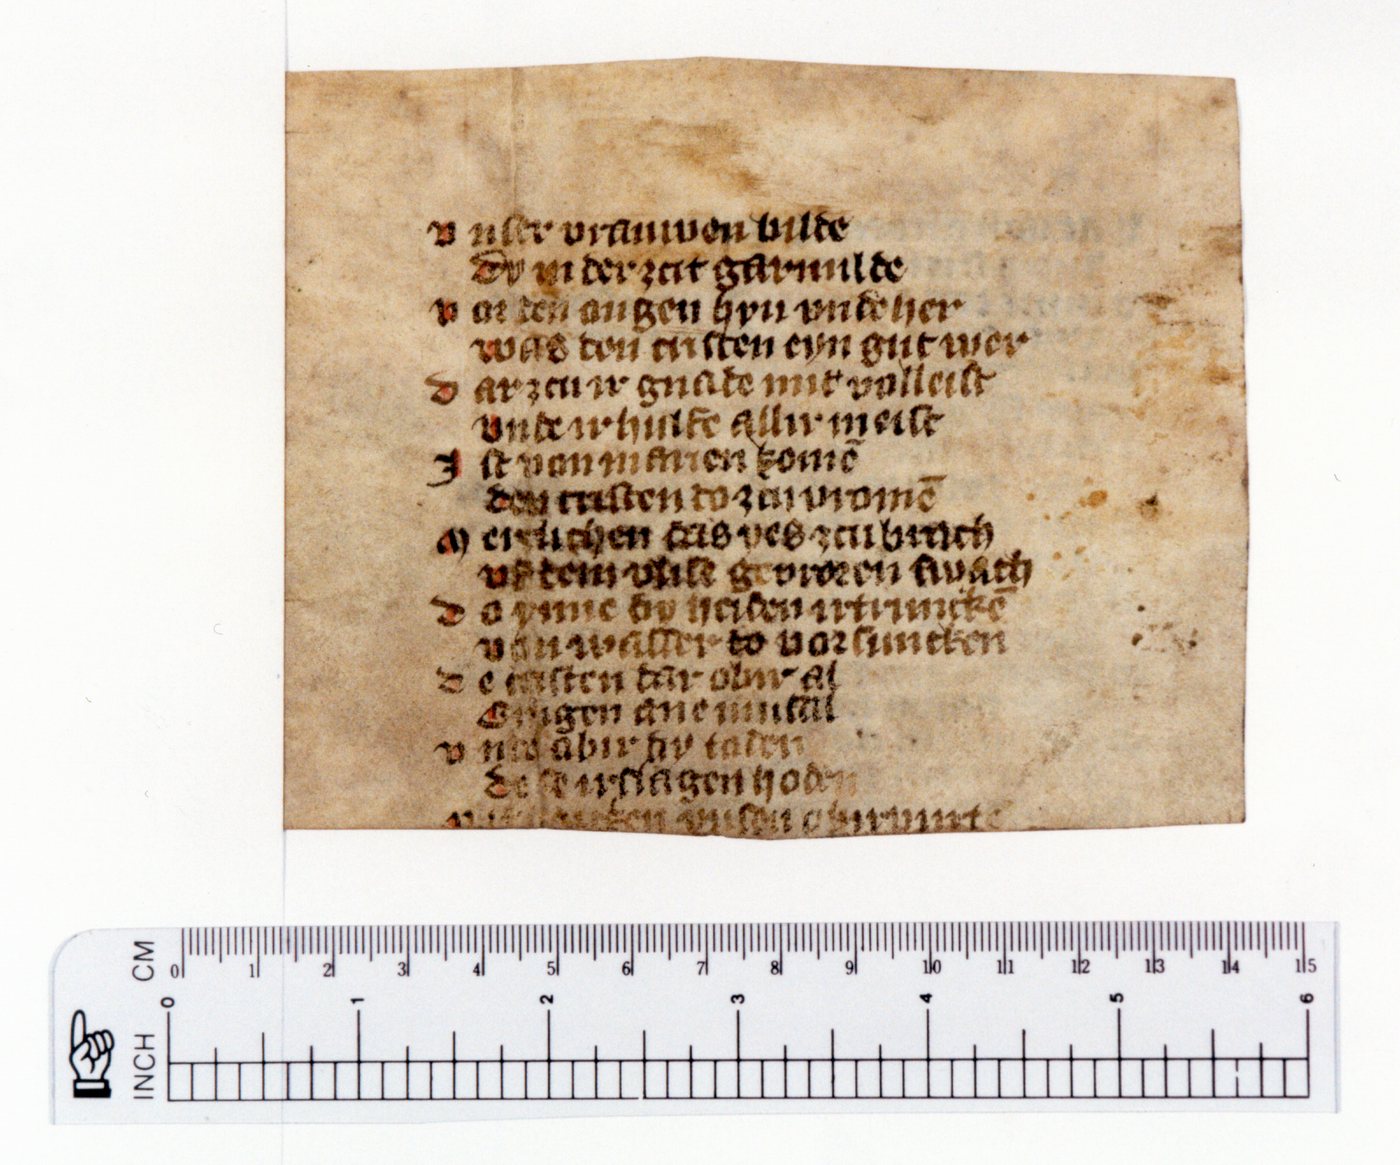 v nser vrauwen bilde
Dy in der zcit gar milde
v or den ougen hyn vnde her
was den cristen eyn gut wer
D ar zcu ir gnade mit volleist
vnde ir hulfe allir meist
I st von marien komē
den cristen do zcu vromē
M eirlichen das yes zcu brach
vf dem vlise gevroren swach
D o ymme dy heiden irtrunckē
von wasser do vorsuncken
D e cristen dar obir al
Gingen ane misual
v nd abir dy toden
de se irslagen hoden
CM
0 1 2 3 4 5 6 7 8 9 10 11 12 13 14 15
INCH
0 1 2 3 4 5 6